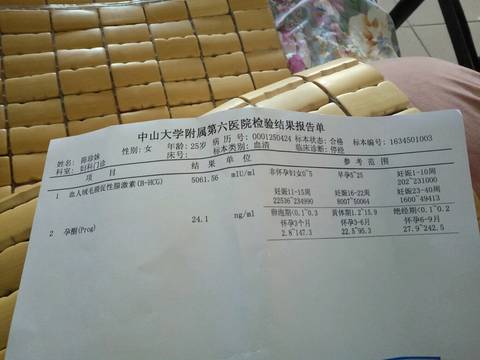 中山大学附属第六医院检验结果报告单
姓名: 陈珍妹 性别: 女 年龄: 25岁 病 历 号: 0001250424 标本状态: 合格 标本编号: 1634501003
科室: 妇科门诊 床号: 标本类别: 血清 临床诊断: 停经
项 目 结 果 单 位 参 考 范 围
1 血人绒毛膜促性腺激素(B-HCG) 5061.56 mIU/ml 非怀孕妇女0~5 早孕5~25 妊娠1-10周
202~231000
妊娠11-15周 妊娠16-22周 妊娠23-40周
22536~234990 8007~50064 1600~49413
2 孕酮(Prog) 24.1 ng/ml 卵泡期<0.1~0.3 黄体期1.2~15.9 绝经期<0.1~0.2
怀孕3个月 怀孕3-6月 怀孕6-9月
2.8~147.3 22.5~95.3 27.9~242.5